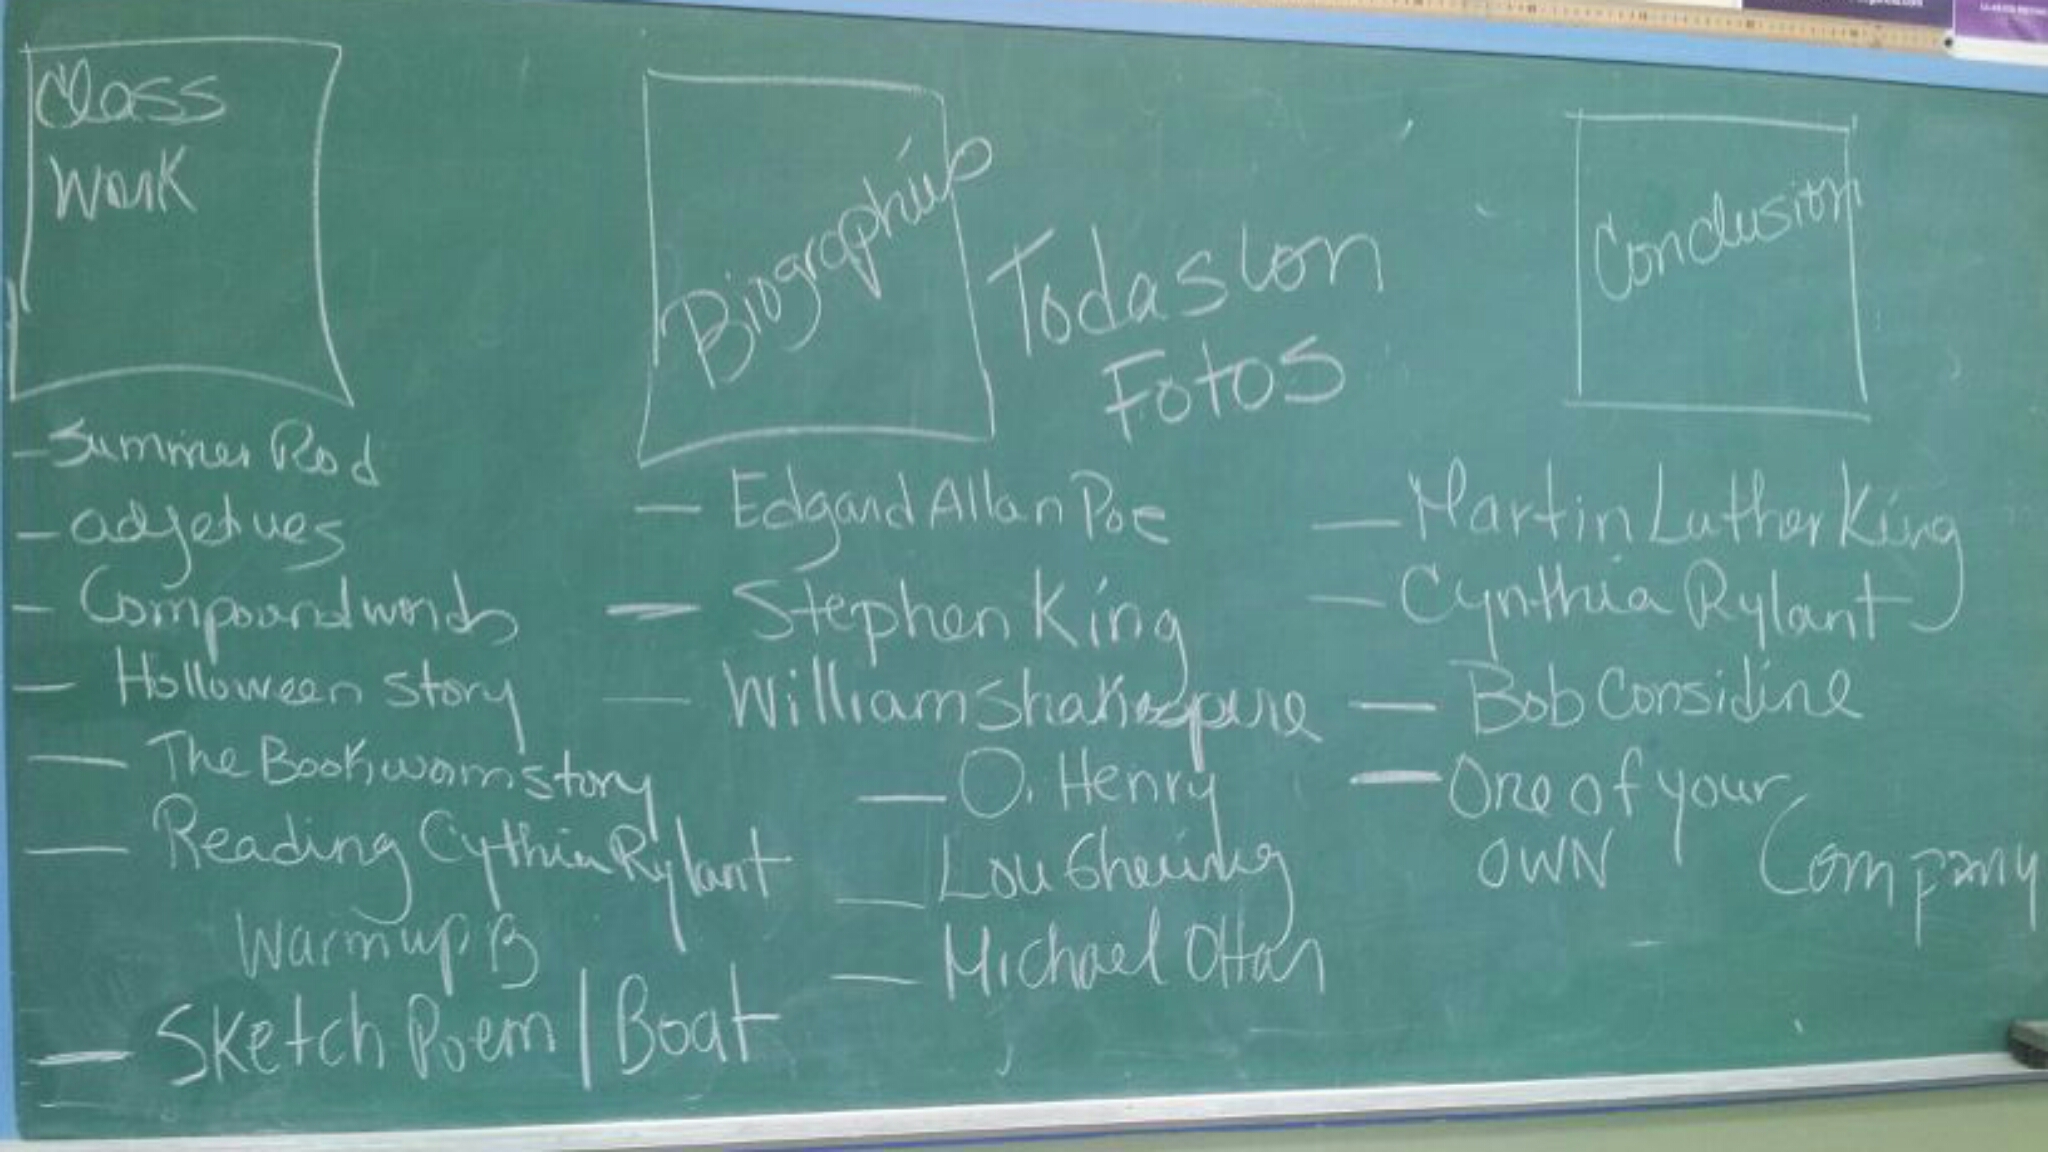 Class
Work
Biographies
Todas con
Fotos
Conclusion
- Summer Rod
- adjetives
- Compound words
- Holloween story
- The Bookworm story
- Reading Cythia Rylant
Warm up B
- Sketch Poem / Boat
- Edgard Allan Poe
- Stephen King
- William Shakespere
- O. Henry
- Lou
- Michael
- Martin Luther King
- Cynthia Rylant
- Bob Considine
- One of your
OWN
Company